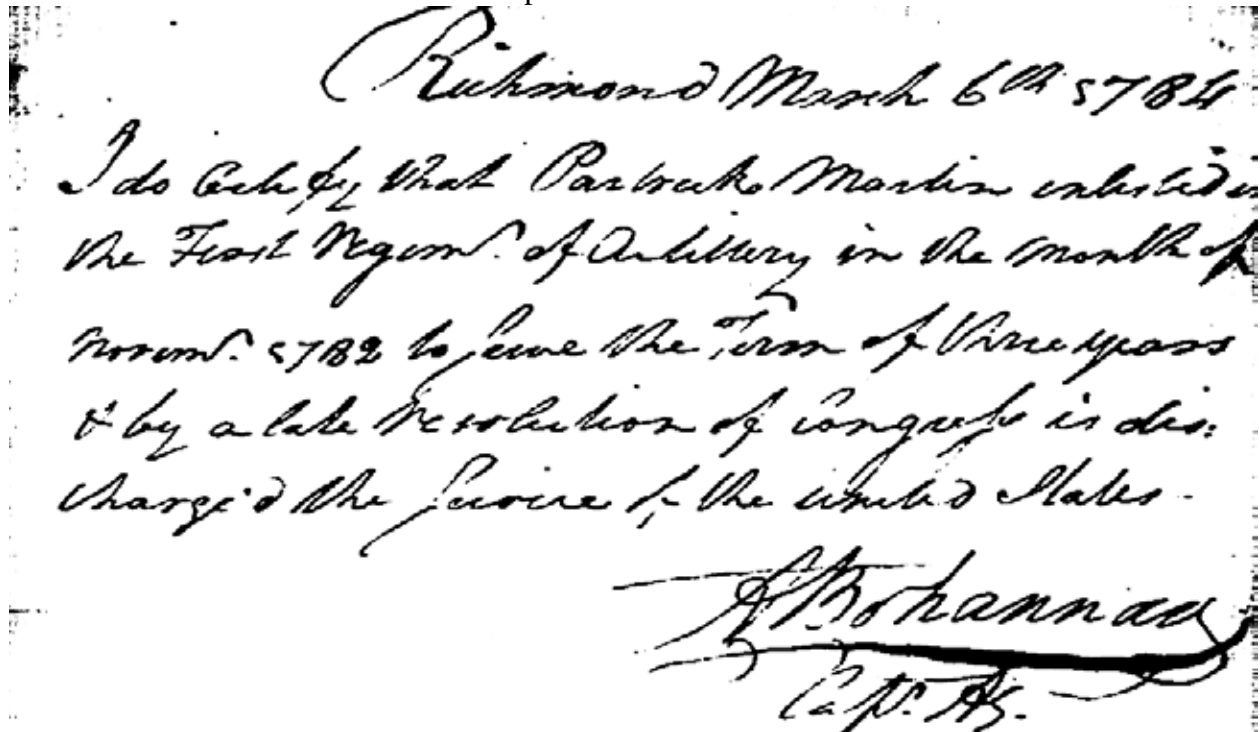 Richmond March 6th 1784
I do Certify that Partrick Martin enlisted in
the First Regimt. of Artillery in the month of
Novemr. 1782 to serve the Term of three years
& by a late resolution of Congress is dis:
charge'd the service of the united States.
A Bohannan
Capt. Ay.